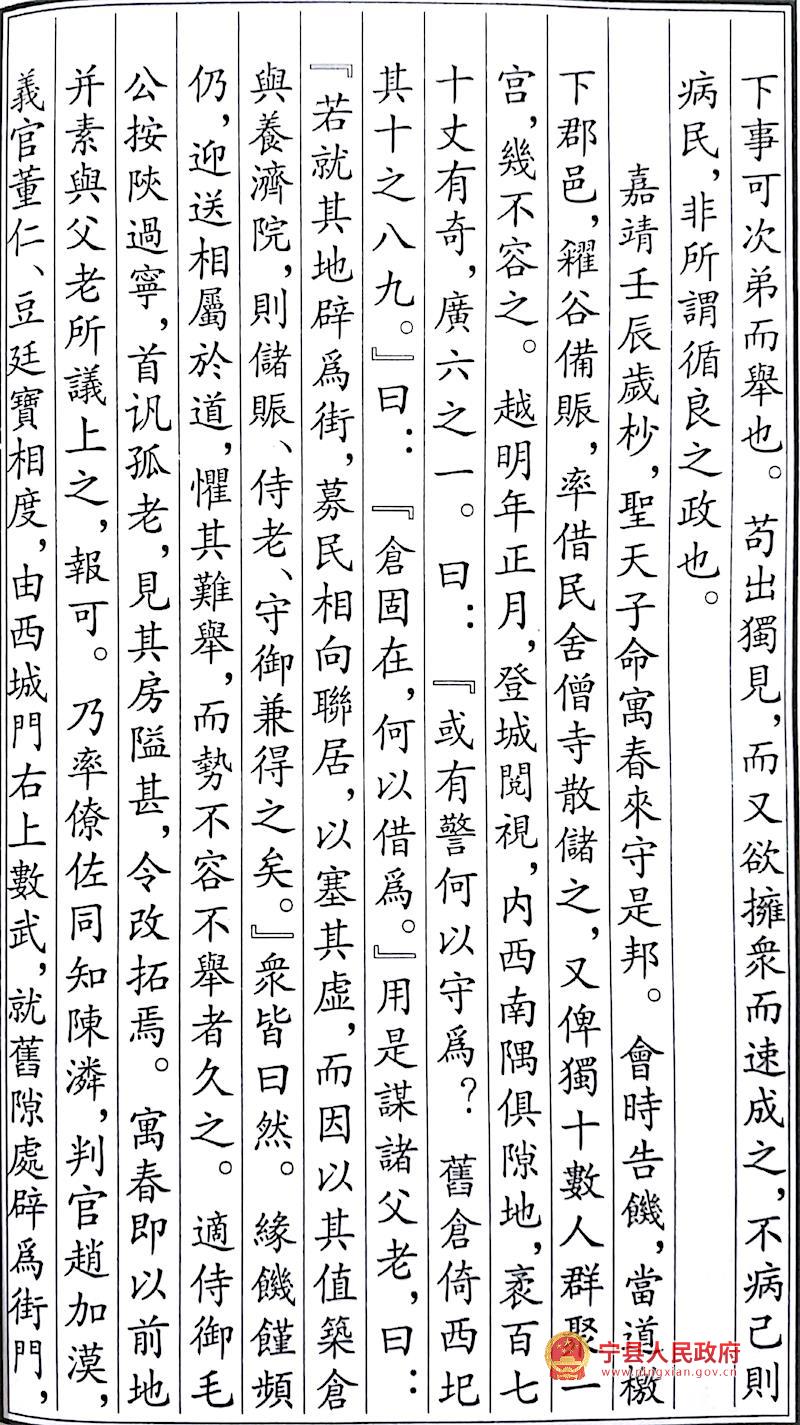 下事可次弟而舉也。苟出獨見，而又欲擁衆而速成之，不病己則
病民，非所謂循良之政也。
嘉靖壬辰歲杪，聖天子命寓春來守是邦。會時告饑，當道檄
下郡邑，糴谷備賑，率借民舍僧寺散儲之，又俾獨十數人群聚一
宫，幾不容之。越明年正月，登城閲視，内西南隅俱隙地，袤百七
十丈有奇，廣六之一。曰：『或有警何以守爲？舊倉倚西圯
其十之八九。』曰：『倉固在，何以借爲。』用是謀諸父老，曰：
『若就其地辟爲街，募民相向聯居，以塞其虚，而因以其值築倉
與養濟院，則儲賑、侍老、守御兼得之矣。』衆皆曰然。緣饑饉頻
仍，迎送相屬於道，懼其難舉，而勢不容不舉者久之。適侍御毛
公按陝過寧，首讯孤老，見其房隘甚，令改拓焉。寓春即以前地
并素與父老所議上之，報可。乃率僚佐同知陳潾，判官趙加漠，
義官董仁、豆廷寶相度，由西城門右上數武，就舊隙處辟爲街門，
宁县人民政府
www.ningxian.gov.cn